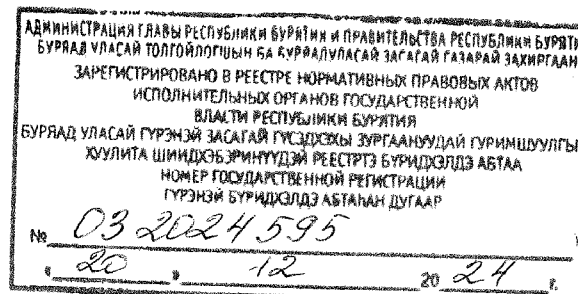 АДМИНИСТРАЦИЯ ГЛАВЫ РЕСПУБЛИКИ БУРЯТИЯ И ПРАВИТЕЛЬСТВА РЕСПУБЛИКИ БУРЯТИ
БУРЯАД УЛАСАЙ ТОЛГОЙЛОГШЫН БА БУРЯАД УЛАСАЙ ЗАСАГАЙ ГАЗАРАЙ ЗАХИРГААН
ЗАРЕГИСТРИРОВАНО В РЕЕСТРЕ НОРМАТИВНЫХ ПРАВОВЫХ АКТОВ
ИСПОЛНИТЕЛЬНЫХ ОРГАНОВ ГОСУДАРСТВЕННОЙ
ВЛАСТИ РЕСПУБЛИКИ БУРЯТИЯ
БУРЯАД УЛАСАЙ ГҮРЭНЭЙ ЗАСАГАЙ ГҮЙСЭДХЭХЫ ЗУРГААНУУДАЙ ГУРИМШУУЛГЫ
ХУУЛИТА ШИИДХЭБЭРИНҮҮДЭЙ РЕЕСТРТЭ БҮРИДХЭЛДЭ АБТАА
НОМЕР ГОСУДАРСТВЕННОЙ РЕГИСТРАЦИИ
ГҮРЭНЭЙ БҮРИДХЭЛДЭ АБТАҺАН ДУГААР
№ 032024595
« 20 » 12 20 24 г.